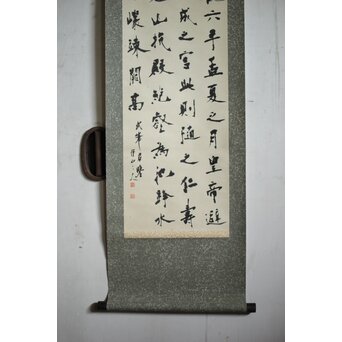 六年孟夏之月皇帝避
成之宮此則隨之仁壽
山抗殿絕壑為池跨水
巖竦闕高